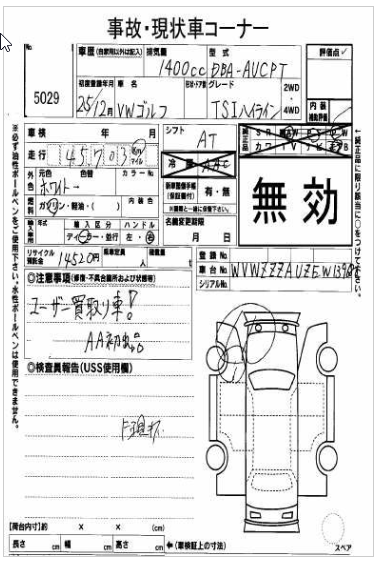 事故・現状車コーナー
No.
5029
車歴(自家用以外は記入) 排気量 型式
1400cc DBA-AUCPT
評価点
初度登録年月 車名 形状・ドア数 グレード
25/12月 VWゴルフ TSIハイライン
2WD・4WD
内装補助評価
車検 年 月
シフト
AT
走行 45,703 km マイル
冷房 AAC
外色 元色 色替 カラーNo.
ホワイト→
燃料 ガソリン・軽油・( ) 内装色
新車整備手帳(保証書付) 有・無
無効
輸入車用 年式 輸入区分 ハンドル
ディーラー・並行 左・右
名義変更期限
月 日
リサイクル預託金 14520円 乗車定員 人 積載量 t
登録No.
車台No. WVWZZZAUZEW
シリアルNo.
◎注意事項(修復・不具合箇所および状態等)
ユーザー買取り車!
AA初出品
◎検査員報告(USS使用欄)
【荷台内寸】約 × × (cm)
長さ cm 幅 cm 高さ cm ←(車検証上の寸法)
スペア
※必ず油性ボールペンをご使用下さい。水性ボールペンは使用できません。
←純正品に限り該当に○をつけて下さい。